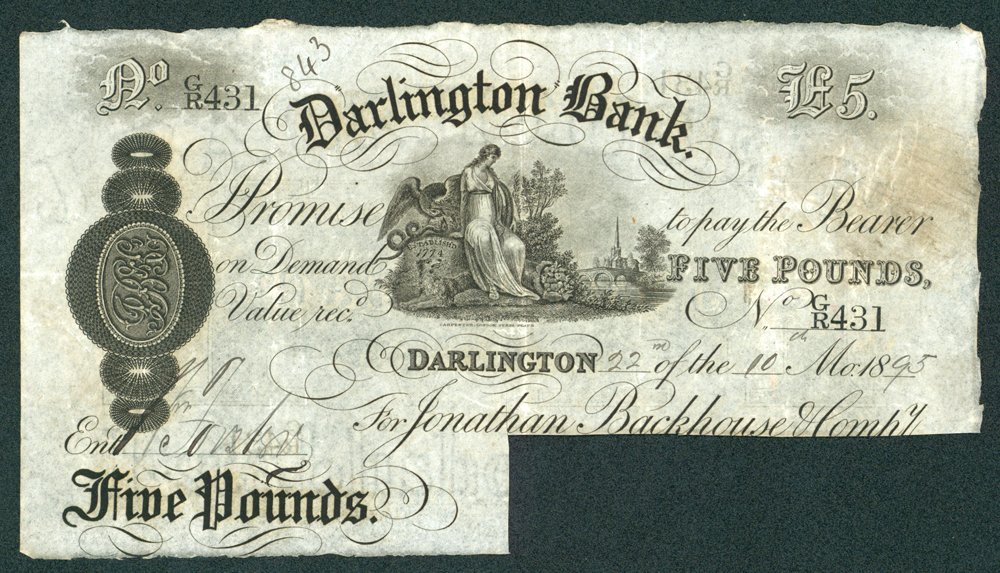 No. G/R431 843 £5.
Darlington Bank.
I Promise to pay the Bearer
on Demand FIVE POUNDS,
Value rec.d No G/R431
ESTABLISHD
1774
CARPENTER LONDON STEEL PLATE
DARLINGTON 22 of the 10th Mo. 1895
For Jonathan Backhouse & Compy
Entd
Five Pounds.